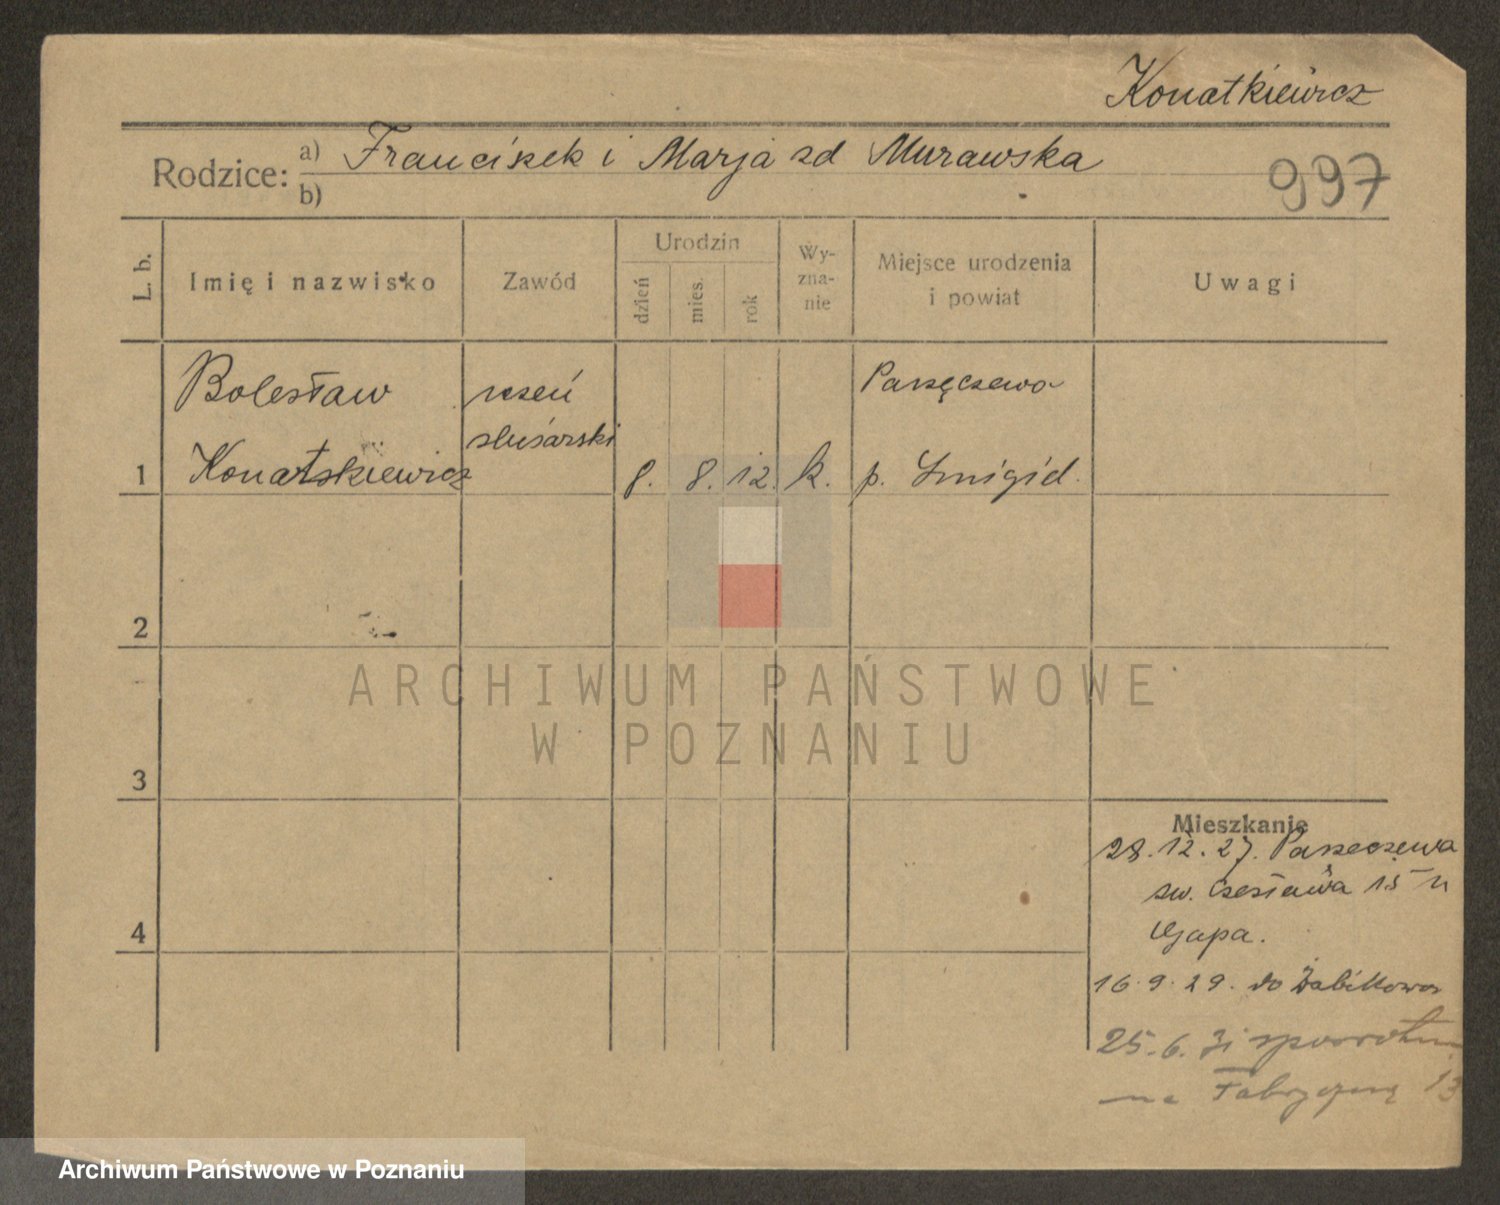 Konatkiewicz
Rodzice: a) Franciszek i Marja zd Murawska
b)
997
L. b.
Imię i nazwisko
Zawód
Urodzin
dzień
mies.
rok
Wy-
zna-
nie
Miejsce urodzenia
i powiat
Uwagi
Bolesław
uczeń
Parzęczewo
ślusarski
1
Konatskiewicz
8. 8. 12. k.
p. Śmigiel.
2
3
4
Mieszkanie
28.12.27. Parzęczewa
św. Czesława 15 u
Gapa.
16.9.29. do Żabikowa
25.6.31 zpowrotem
na Fabryczną 13
ARCHIWUM PAŃSTWOWE
W POZNANIU
Archiwum Państwowe w Poznaniu